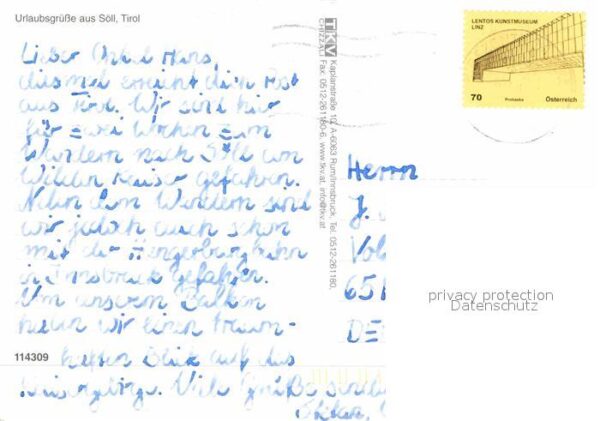 Urlaubsgrüße aus Söll, Tirol
Lieber Onkel Hans,
diesmal erreicht dich Post
aus Tirol. Wir sind hier
für zwei Wochen zum
Wandern nach Söll am
Wilden Kaiser gefahren.
Neben dem Wandern sind
wir jedoch auch schon
mit der Hungerburgbahn
in Innsbruck gefahren.
Von unserem Balkon
haben wir einen traum-
haften Blick auf das
Kaisergebirge. Viele Grüße
114309
TKV
Kaplanstraße A-6063 Rum/Innsbruck, Tel. 0512-261180,
Fax: 0512-261180-6, www.tkv.at, info@tkv.at
LENTOS KUNSTMUSEUM
LINZ
70 Österreich
Herrn
J.
651
privacy protection
Datenschutz